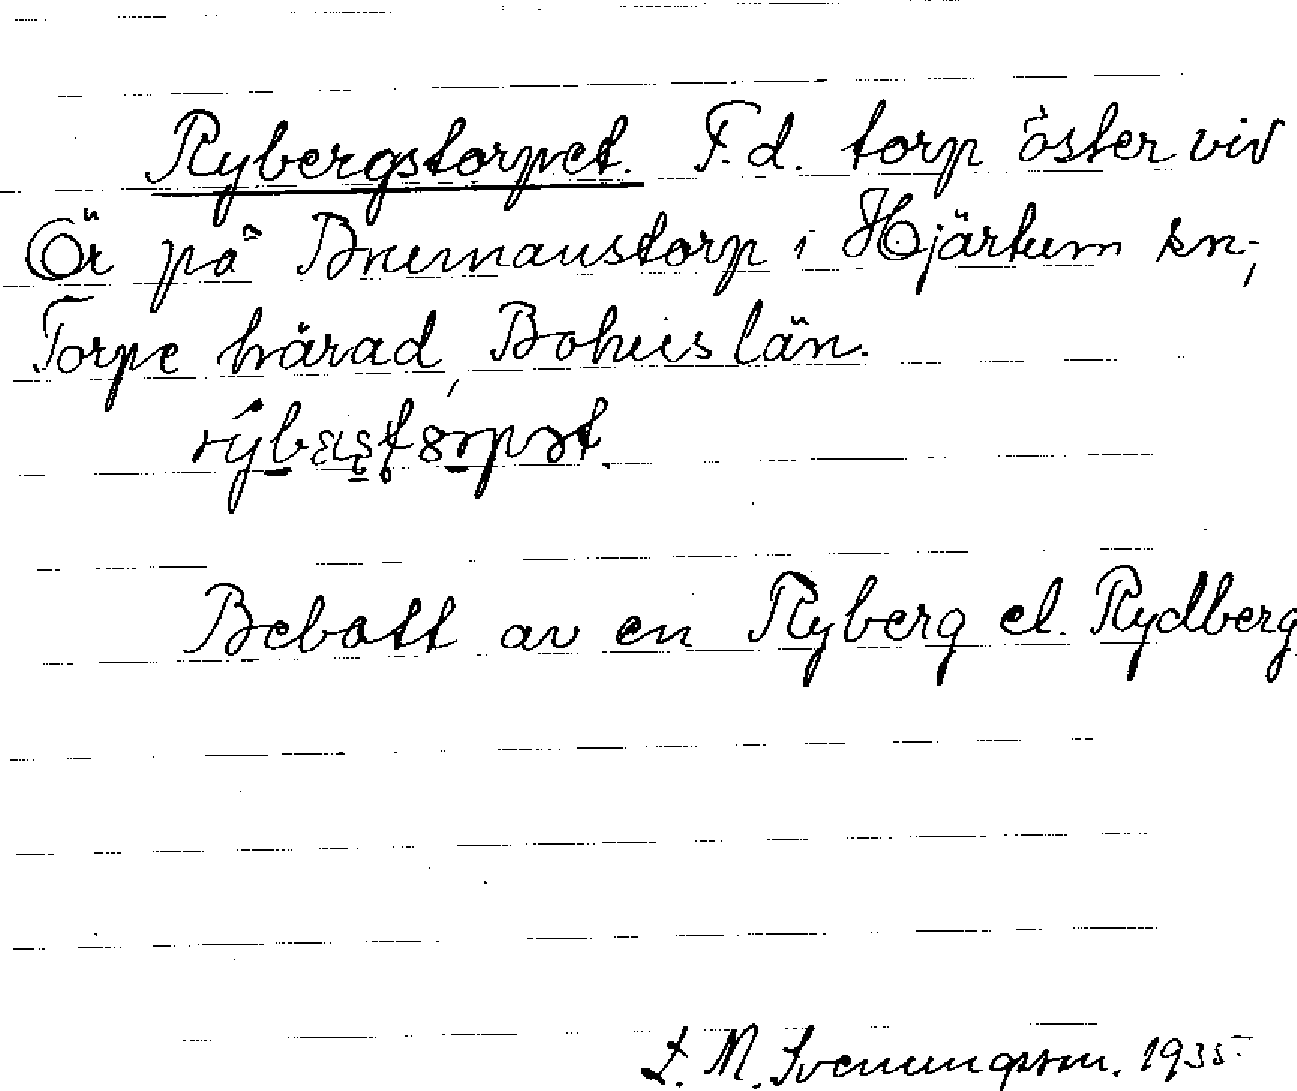 Rybergstorpet. F.d. torp öster vid
Ör på Brumanstorp i Hjärtum sn,
Torpe härad, Bohuslän.
Bebott av en Ryberg el. Rydberg
L. M. Svenungsson. 1935